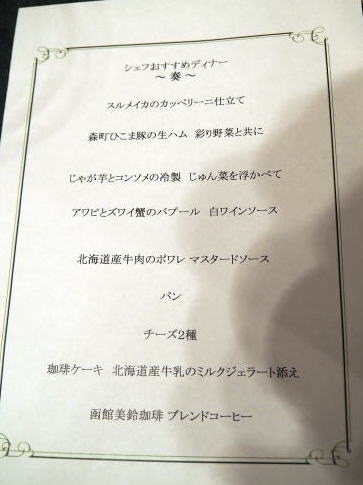 シェフおすすめディナー
～ 奏 ～
スルメイカのカッペリーニ仕立て
森町ひこま豚の生ハム 彩り野菜と共に
じゃが芋とコンソメの冷製 じゅん菜を浮かべて
アワビとズワイ蟹のバプール 白ワインソース
北海道産牛肉のポワレ マスタードソース
パン
チーズ2種
珈琲ケーキ 北海道産牛乳のミルクジェラート添え
函館美鈴珈琲 ブレンドコーヒー